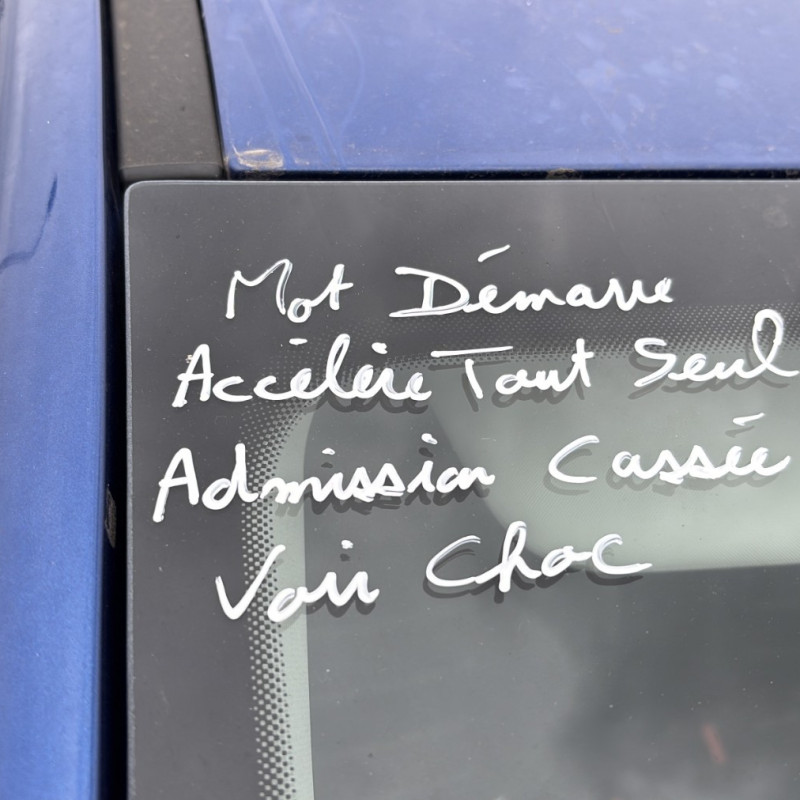 Mot Démarre
Accélère Tout Seul
Admission Cassée
Voir Choc